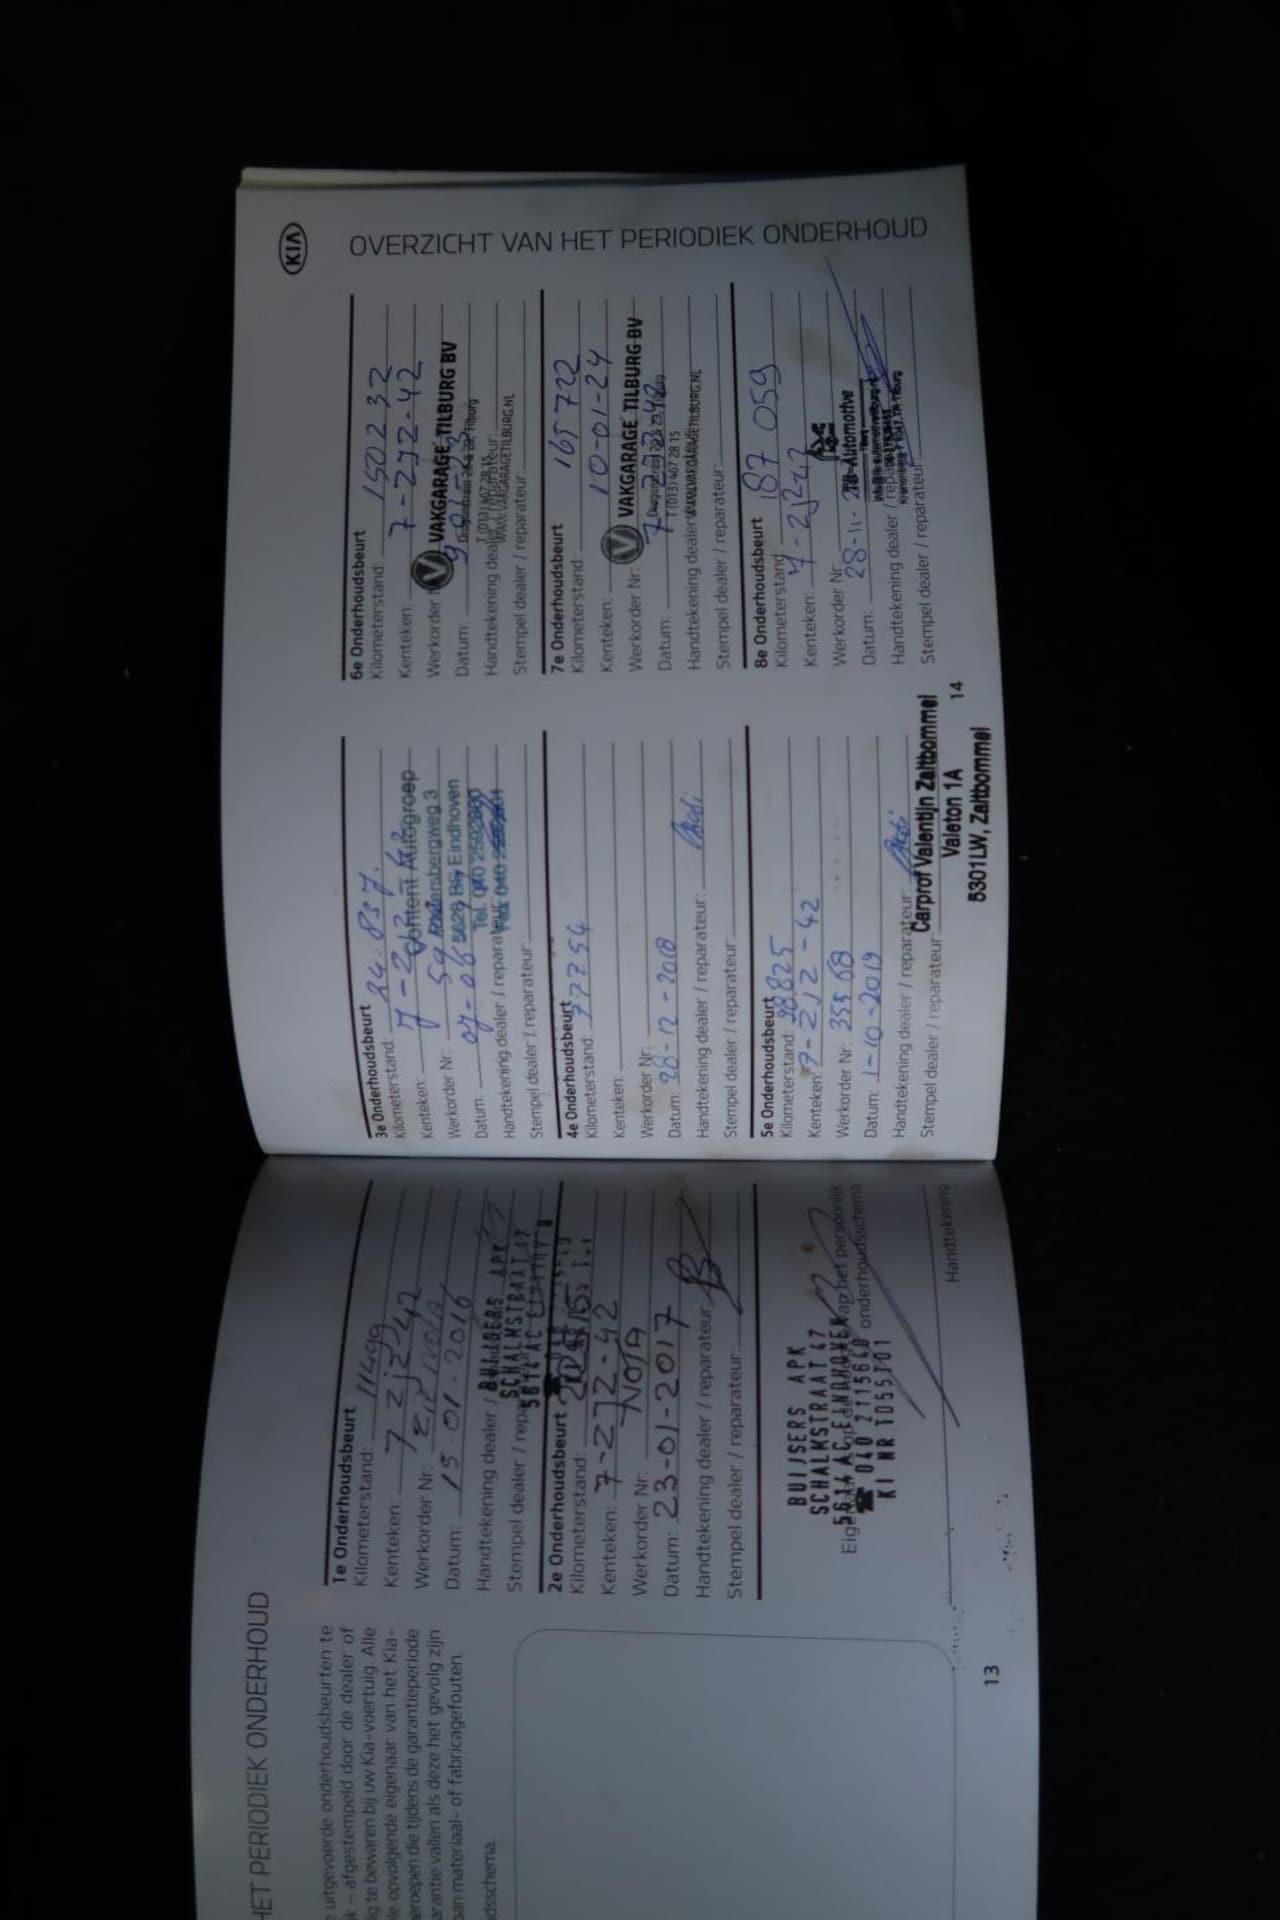 HET PERIODIEK ONDERHOUD
uitgevoerde onderhoudsbeurten te
k - afgestempeld door de dealer of
ig te bewaren bij uw Kia-voertuig. Alle
le opvolgende eigenaar van het Kia-
eroepen die tijdens de garantieperiode
arantie vallen als deze het gevolg zijn
an materiaal- of fabricagefouten.
dsschema.
1e Onderhoudsbeurt
Kilometerstand: 11499
Kenteken: 7 ZJZ 42
Werkorder Nr.:
Datum: 15-01-2016
Handtekening dealer /
Stempel dealer /
BUIJSERS APK
SCHALMSTRAAT 47
5614 AC
2e Onderhoudsbeurt
Kilometerstand:
Kenteken: 7-ZJZ-42
Werkorder Nr.: NOTA
Datum: 23-01-2017
Handtekening dealer / reparateur:
Stempel dealer / reparateur:
BUIJSERS APK
SCHALMSTRAAT 47
5614 AC EINDHOVEN
☎ 040 2115640
KI NR TD55101
het persoonlijk
onderhoudsschema
Handtekening
13
KIA
OVERZICHT VAN HET PERIODIEK ONDERHOUD
3e Onderhoudsbeurt
Kilometerstand: 24.837.
Kenteken:
Werkorder Nr.:
Datum:
Handtekening dealer / reparateur:
Stempel dealer / reparateur:
Content Autogroep
5626 BG Eindhoven
Tel. 040 2592600
Fax 040
4e Onderhoudsbeurt
Kilometerstand: 77754
Kenteken:
Werkorder Nr.:
Datum: 20-12-2018
Handtekening dealer / reparateur:
Stempel dealer / reparateur:
5e Onderhoudsbeurt
Kilometerstand: 98825
Kenteken: 7-ZJZ-42
Werkorder Nr.: 35568
Datum: 1-10-2019
Handtekening dealer / reparateur:
Stempel dealer / reparateur:
Carprof Valentijn Zaltbommel
Valeton 1A
5301LW, Zaltbommel
6e Onderhoudsbeurt
Kilometerstand: 150232
Kenteken: 7-ZJZ-42
Werkorder
Datum:
Handtekening dealer / reparateur:
Stempel dealer / reparateur:
VAKGARAGE TILBURG BV
T (013) 467 28 15
WWW.VAKGARAGETILBURG.NL
7e Onderhoudsbeurt
Kilometerstand: 165722
Kenteken: 10-01-24
Werkorder Nr.:
Datum:
Handtekening dealer / reparateur:
Stempel dealer / reparateur:
VAKGARAGE TILBURG BV
T (013) 467 28 15
WWW.VAKGARAGETILBURG.NL
8e Onderhoudsbeurt
Kilometerstand: 187 059
Kenteken: 7-ZJZ42
Werkorder Nr.:
Datum: 28-11-
Handtekening dealer / reparateur:
Stempel dealer / reparateur:
Automotive
14